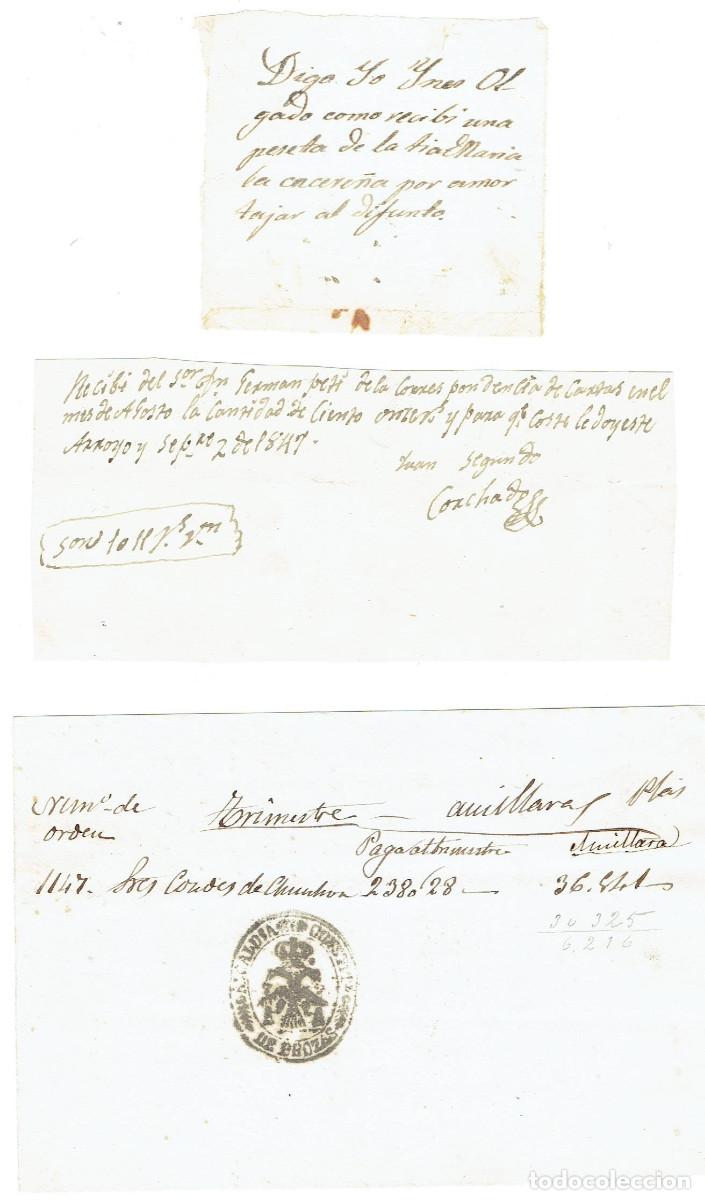 Digo Yo Ynes Ol
gado como recibi una
peseta de la tia Maria
la cacereña por amor
tajar al difunto.
Recibi del Sor Dn German peti de la Corres pondencia de Cartas en el
mes de Agosto la Cantidad de Ciento onze rs y para qe Coste le doy este
Arroyo y Sepre 2 de 1847.
Juan Segundo
Corchado
Son 111 rs vn
Numo de
orden
trimestre — amillara Ptas
Paga al trimestre Amillara
1147. Sres Condes de 2380'28 — 36.
325
6.216
ALCALDIA CONSTI
DE BROZAS
todocoleccion